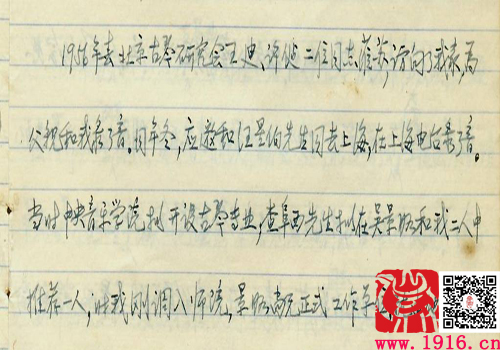 1956年春北京古琴研究会王迪、许健二位同志莅苏,访问了我家,为
父亲和我录了音。同年冬,应邀和汪星伯先生同去上海,在上海电台录了音。
当时中央音乐学院拟开设古琴专业,查阜西先生拟在吴景略和我二人中
推荐一人,让我刚调入师院,景略尚无正式工作
www.1916.cn